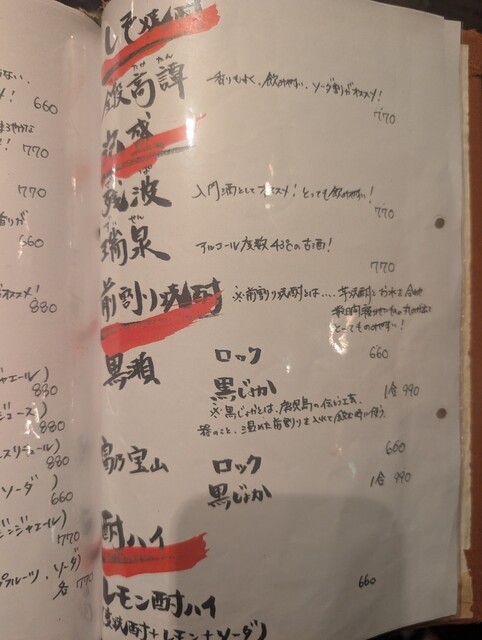 ない、
！
660
770
770
香りが
660
オススメ！
880
ジャエール)
880
ジュース)
880
スリキュール)
880
ソーダ)
660
ジンジャエール)
770
プフルーツ、ソーダ)
各 770
しそ焼酎
鍛高譚 たん たか
香りもよく、飲みやすい、ソーダ割りがオススメ！
770
泡盛
残波 ぱ
入門酒としてオススメ！とっても飲みやすい！
770
瑞泉 せん
アルコール度数43°の古酒！
770
前割り焼酎
※前割り焼酎とは‥‥ 芋焼酎とお水を合わせ
数日間寝かせ
とってものみやすい！
黒瀬 ロック 660
黒じょか 1合 990
※黒じょかとは、鹿児島の伝統工芸
器のこと、温めた前割りを入れて飲む時に使う。
660
高乃宝山 ロック
1合 990
黒じょか
酎ハイ
レモン酎ハイ 660
焼酎+レモン+ソーダ)